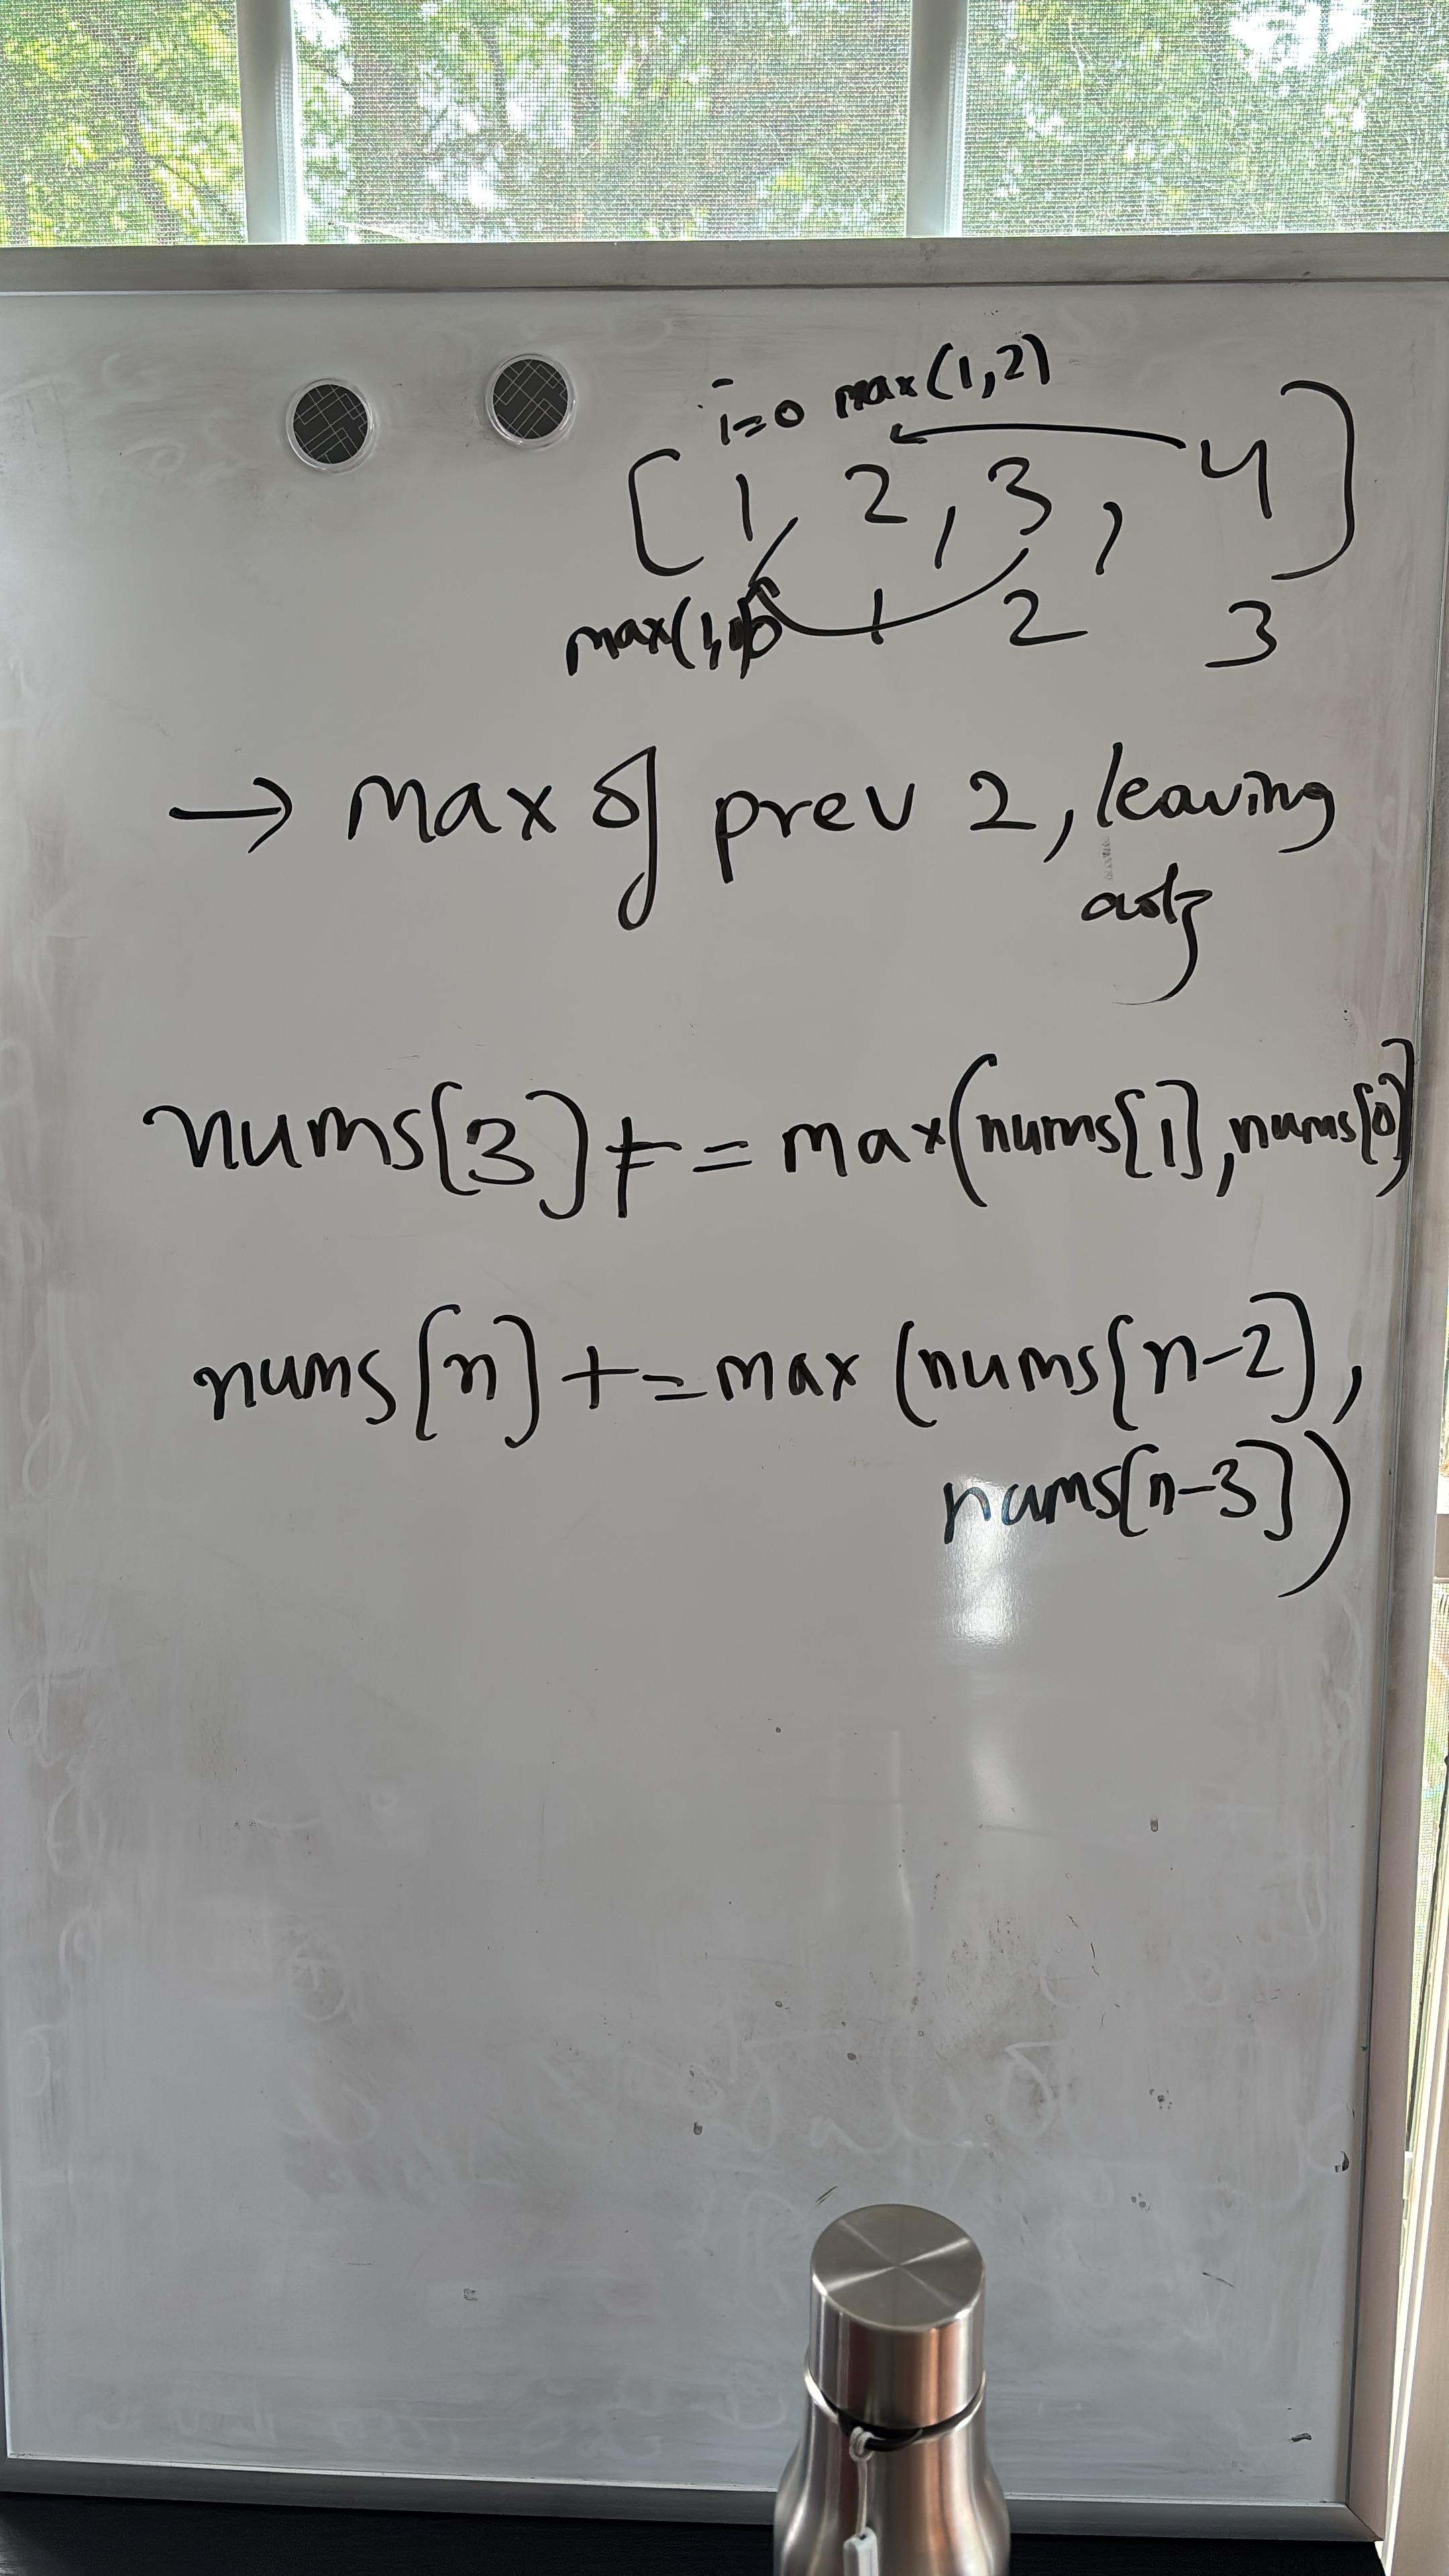 i=0 max(1,2)
[1, 2, 3, 4]
max(1, 0 1 2 3
→ max of prev 2, leaving
adj
nums[3] += max(nums[1], nums[0])
nums[n] += max(nums[n-2],
nums[n-3])